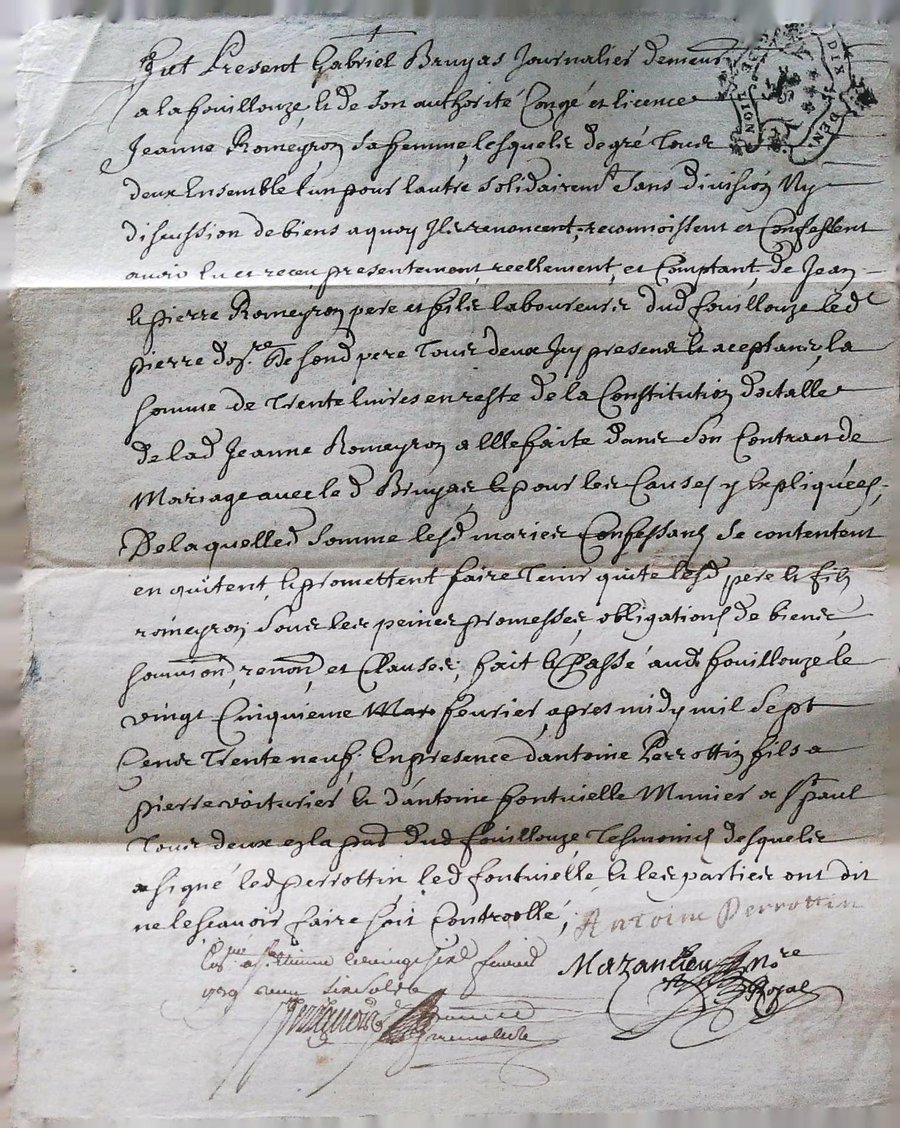 Fut Present Gabriel Bruyas Journalier demeur
a la fouillouze, & de son authorité Congé et licence
Jeanne Romeyron sa femme, lesquels de gré Tous
deux Ensemble l'un pour l'autre solidairemt sans division Ny
discussion de biens a quoy Ils renoncent, reconnoissent et Confessent
avoir eu et receu presentement, reellement, et Comptant, de Jean
& pierre Romeyron pere et fils laboureurs dud fouillouze led
pierre de sond pere Tous deux Icy presens & aceptans, la
somme de Trente livres en reste de la Constitution
de lad Jeanne Romeyron a Elle faite dans son Contrat de
Mariage avec led Bruyas, & pour les Causes y Expliquées,
De laquelled somme lesd maries Confessans se contentent
en quitent, & promettent faire Tenir quite lesd pere & fils
romeyron sous les peines promesses, obligations de biens
soumions, renons, et Clauses; fait & Passé aud fouillouze le
vingt Cinquieme Mars fevrier, apres midy mil sept
Cens Trente neuf, En presence d'antoine Perrottin fils a
pierre voiturier & d'antoine fontvielle Munier a St paul
Tous deux de la par dud fouillouze Tesmoins desquels
a signé led perrottin led fontvielle & les parties ont dit
ne le scavoir faire soit Controllé;
Antoine Perrottin
Mazandieu nore
Royal
fevrier
DIX DEN.